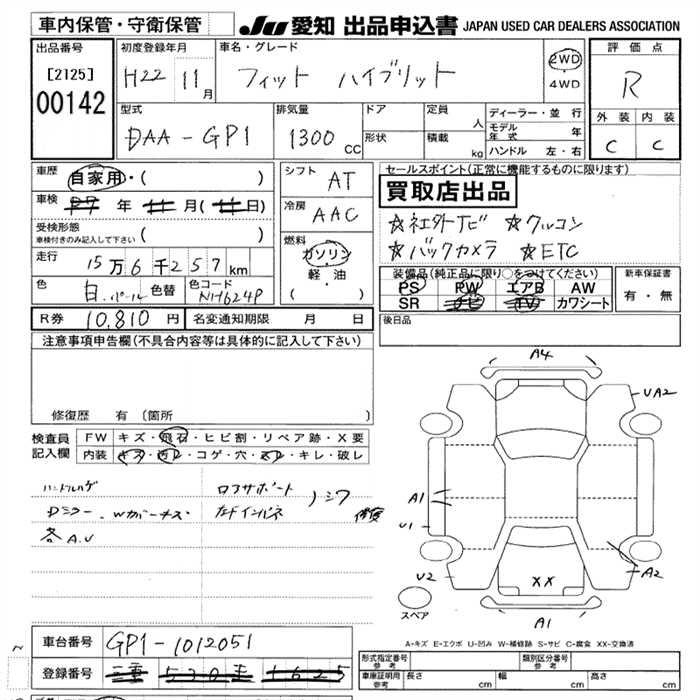 車内保管・守衛保管
JU 愛知 出品申込書 JAPAN USED CAR DEALERS ASSOCIATION
出品番号
[2125]
00142
初度登録年月
H22 11月
車名・グレード
フィット ハイブリット
2WD
・
4WD
評価点
R
外装 内装
C C
型式
DAA-GP1
排気量
1300 CC
ドア
形状
定員 人
積載 kg
ディーラー・並行
モデル年式 年
ハンドル 左・右
車歴
自家用・( )
車検
R7 年 11 月(11日)
受検形態
車検付きのみ記入して下さい ( )
走行
15万6千257km
色
白.パール
色替
色コード
NH624P
シフト
AT
冷房
AAC
燃料
ガソリン
軽・油
( ・ )
セールスポイント(正常に機能するものに限ります)
買取店出品
☆社外ナビ ☆クルコン
☆バックカメラ ☆ETC
装備品(純正品に限り○をつけてください)
PS PW エアB AW
SR ナビ TV カワシート
新車保証書
有・無
後日品
R券 10,810 円 名変通知期限 月 日
注意事項申告欄(不具合内容等は具体的に記入して下さい)
修復歴 有(箇所 )
検査員
記入欄
FW キズ・飛石・ヒビ割・リペア跡・X要
内装 キズ・汚レ・コゲ・穴・スレ・キレ・破レ
ハンドルハゲ
Dミラー、Wカバーキズ
各A.U
コアサポート
左ドインパネ
シワ
修
A4
UA2
A1
U1
U2
XX
A2
A1
スペア
A-キズ E-エクボ U-凹み W-補修跡 S-サビ C-腐食 XX-交換済
車台番号 GP1-1012051
登録番号 三重 530 1625
形式指定番号
参考
類別区分番号
参考
車庫証明用
参考
長さ cm 幅 cm 高さ cm